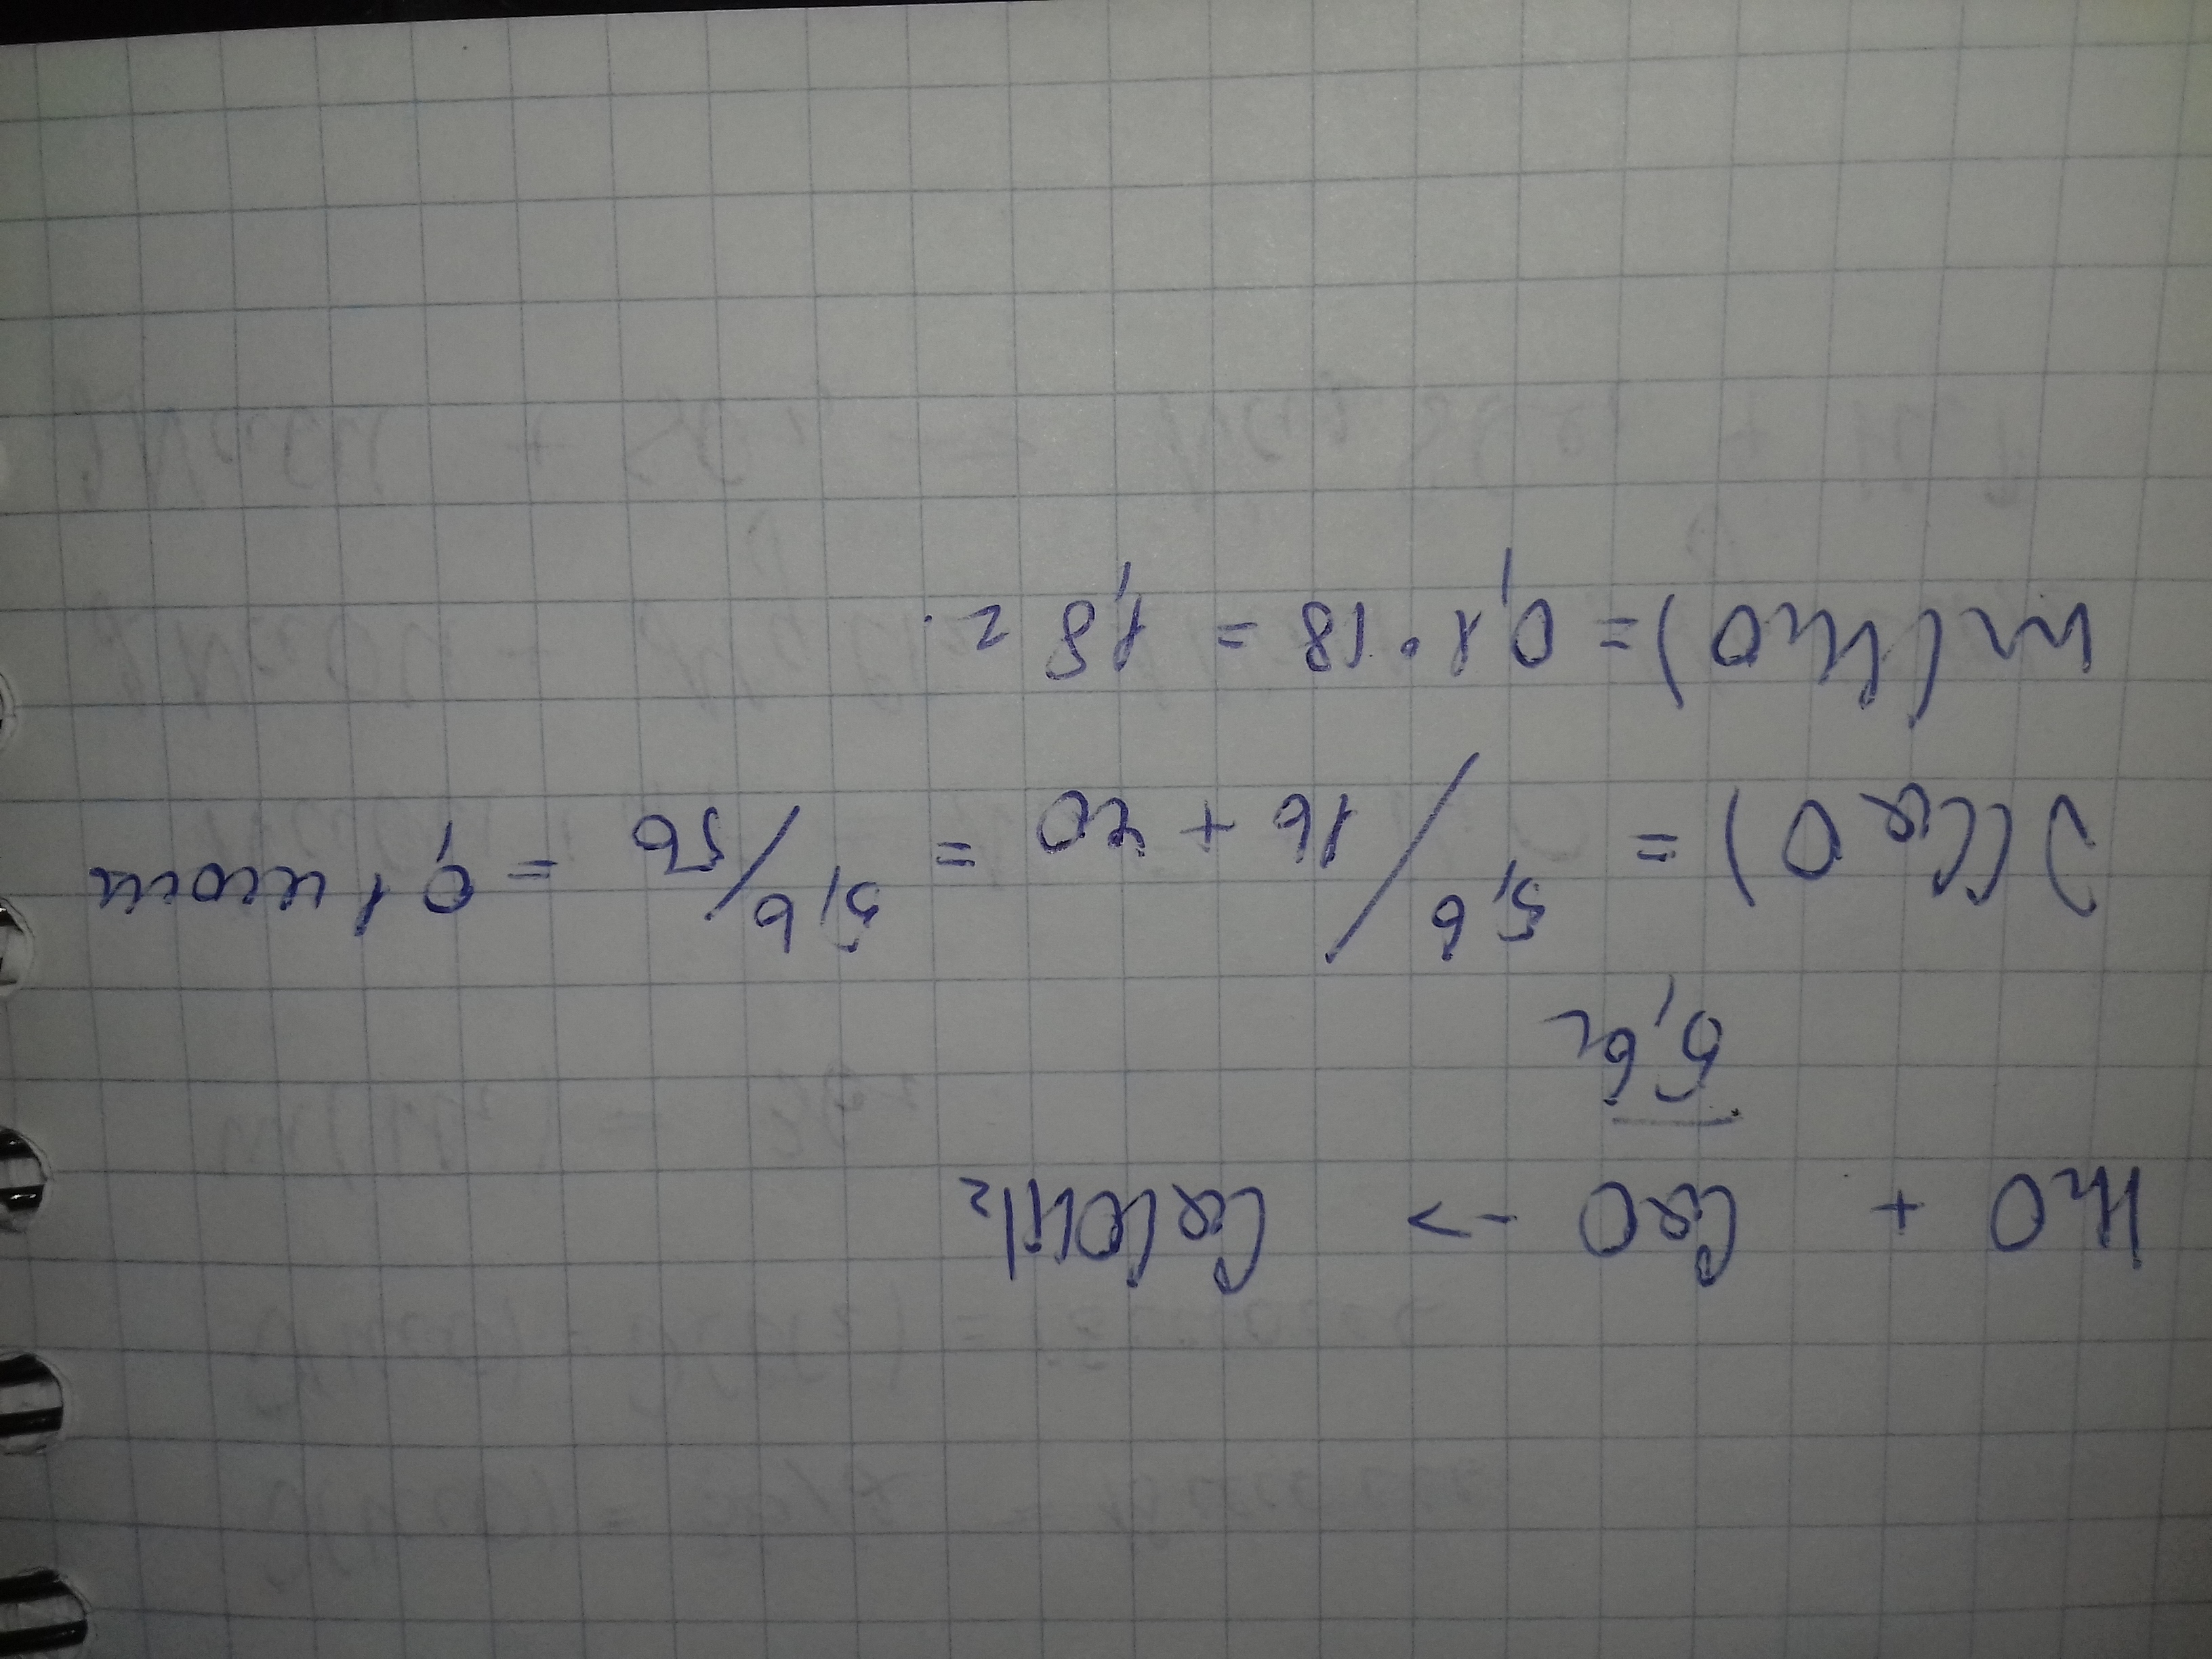 H2O + CaO -> Ca(OH)2
5,6г
ν(CaO) = 5,6/16+40 = 5,6/56 = 0,1 моль
m(H2O) = 0,1·18 = 1,8 г.